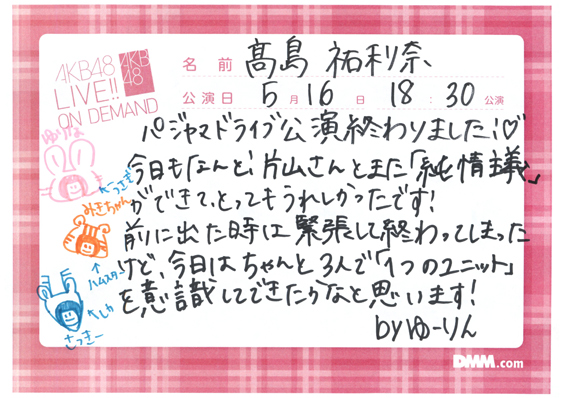 AKB48
LIVE!!
ON DEMAND
AKB
48
名前 髙島 祐利奈
公演日 5月16日 18:30公演
パジャマドライブ公演終わりました!♡
今日もなんと、片山さんとまた「純情主義」
ができて、とってもうれしかったです!
前に出た時は緊張して終わってしまった
けど、今日はちゃんと3人で「1つのユニット」
を意識してできたかなと思います!
byゆーりん
ゆりな
←うさぎ
みきちゃん
↑
ハムスター
←しか
さっきー
DMM.com